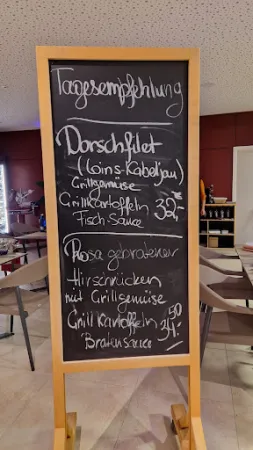 Tagesempfehlung
Dorschfilet
(Loins-Kabeljau)
Grillgemüse
Grillkartoffeln 32,-€
Fisch-Sauce
Rosa gebratener
Hirschrücken
mit Grillgemüse
Grillkartoffeln 34,50
Bratensauce